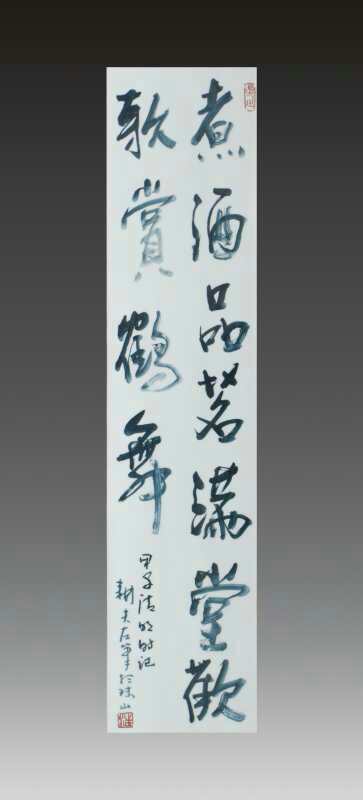 煮酒品茗满堂歡
歌賞鶴舞
甲子清明时记
耕夫左军於珠山